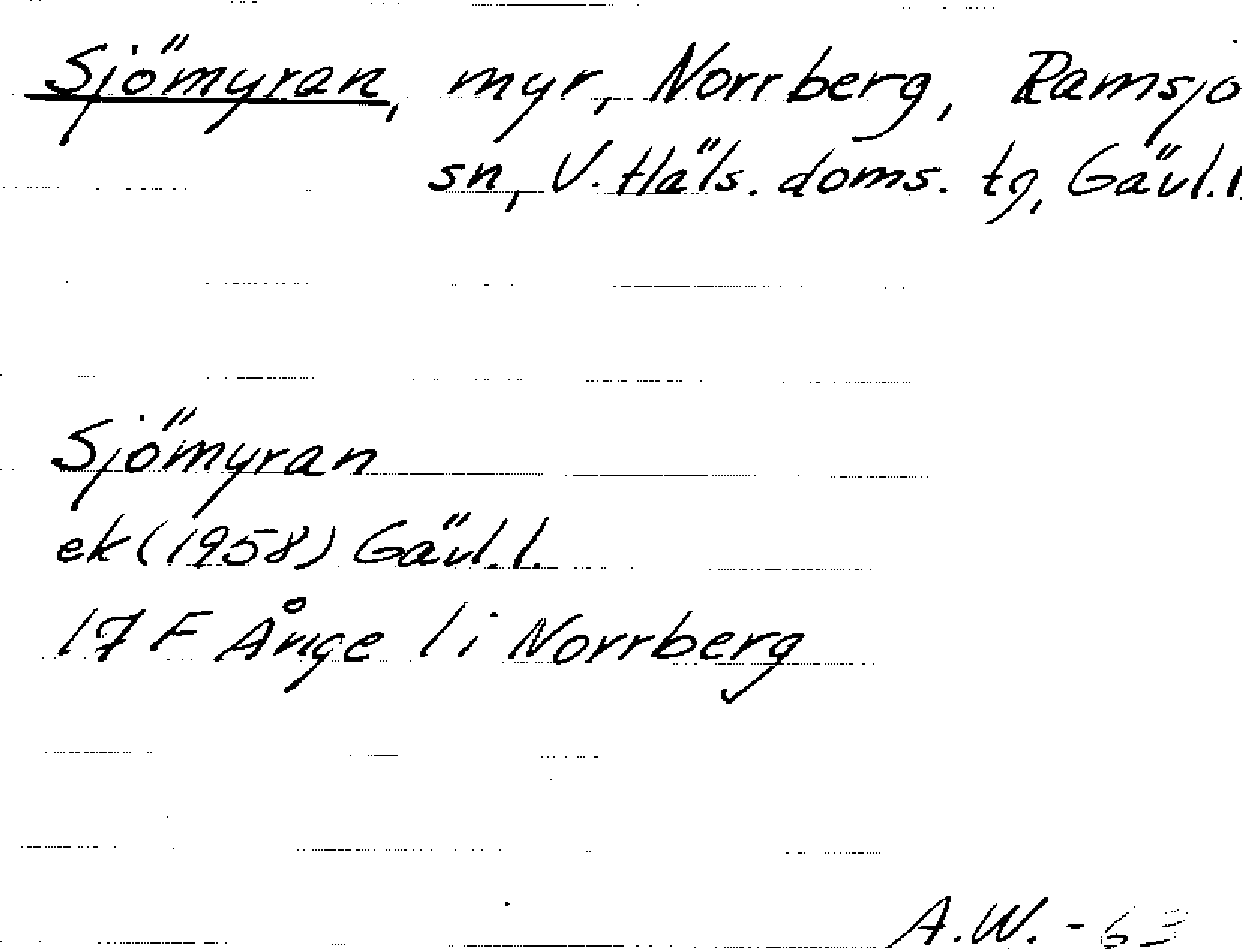 Sjömyran, myr, Norrberg, Ramsjö
sn, V. Häls. doms. tg, Gävl.l.
Sjömyran
ek (1958) Gävl.l.
17 F Ånge 1 i Norrberg
A.W. - 63